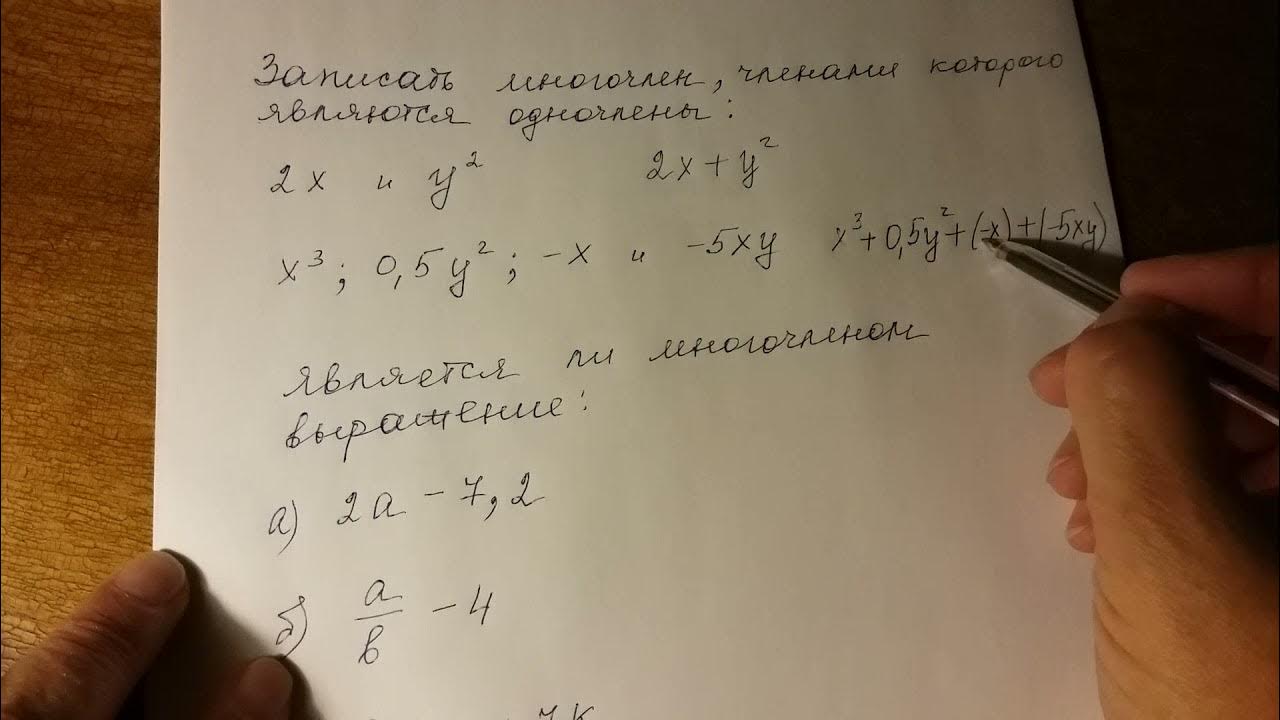 Записать многочлен, членами которого
являются одночлены:
2x и y² 2x + y²
x³; 0,5y²; -x и -5xy x³+0,5y²+(-x)+(-5xy)
является ли многочленом
выражение:
а) 2a - 7,2
б) a/b - 4
7k